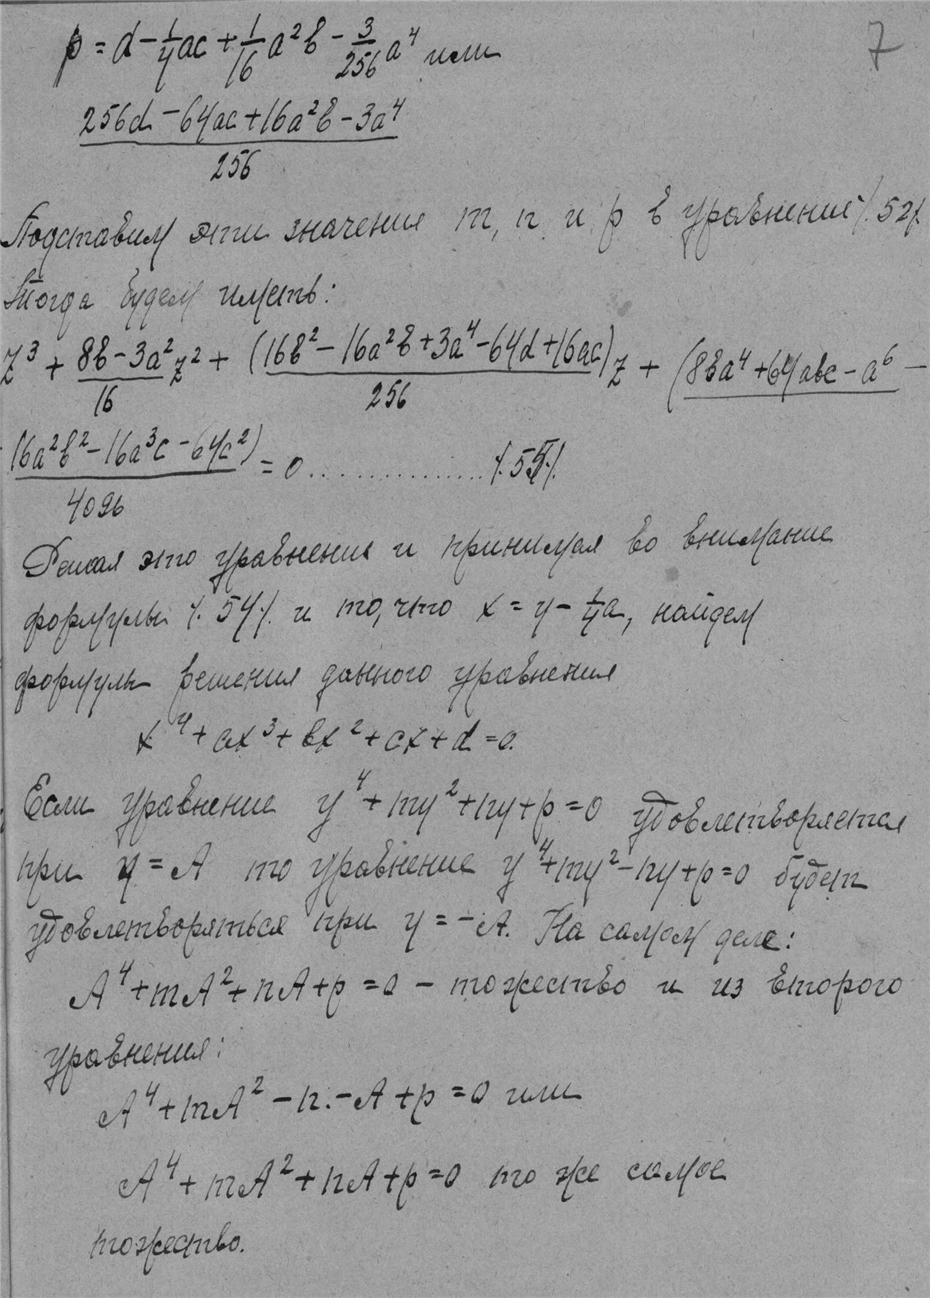 7
p = d - 1/4 ac + 1/16 a²b - 3/256 a⁴ или
256d - 64ac + 16a²b - 3a⁴
256
Подставим эти значения m, n и p в уравнение /.52/.
Тогда будем иметь:
z³ + (8b - 3a²)/16 z² + (16b² - 16a²b + 3a⁴ - 64d + 16ac)/256 z + (8ba⁴ + 64abc - a⁶ -
16a²b² - 16a³c - 64c²)/4096 = 0 ............... /.55/.
Решая это уравнение и принимая во внимание
формулы /.54/. и то, что x = y - 1/4 a, найдем
формулы решения данного уравнения
x⁴ + ax³ + bx² + cx + d = 0.
Если уравнение y⁴ + my² + ny + p = 0 удовлетворяется
при y = A то уравнение y⁴ + my² - ny + p = 0 будет
удовлетворяться при y = -A. На самом деле:
A⁴ + mA² + nA + p = 0 – тожество и из второго
уравнения:
A⁴ + mA² - n.-A + p = 0 или
A⁴ + mA² + nA + p = 0 то же самое
тожество.